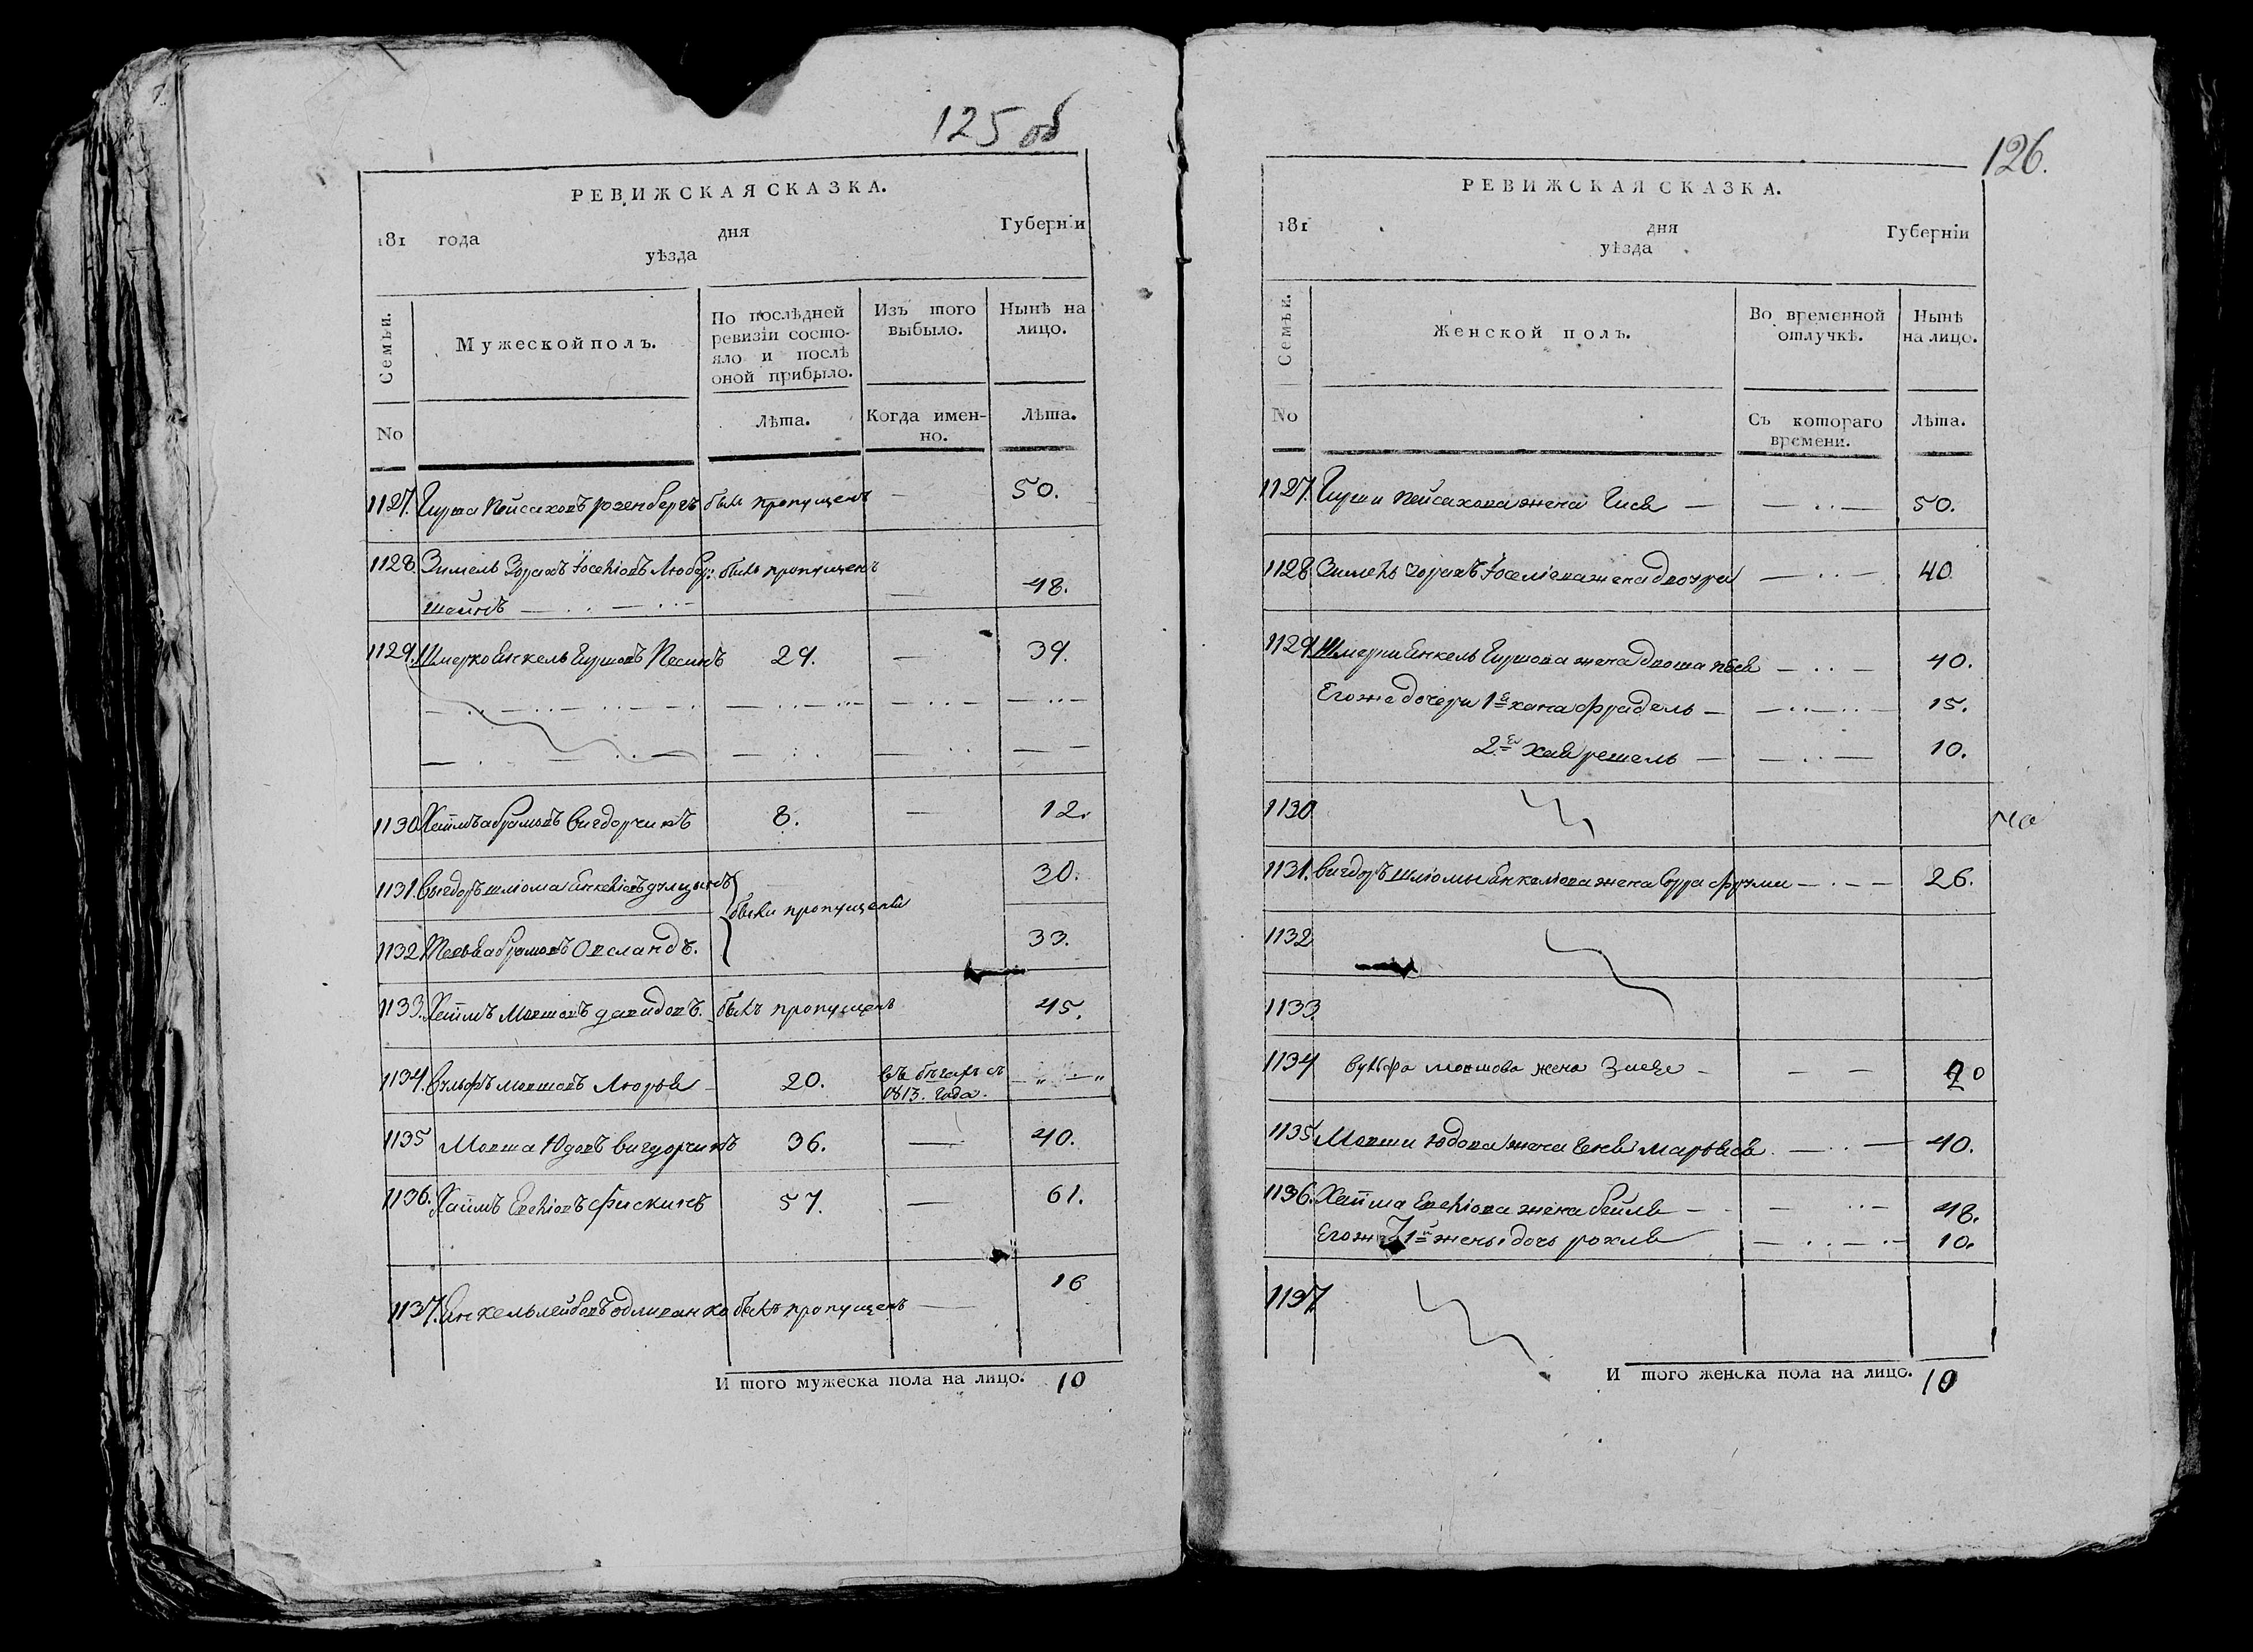 125 об
РЕВИЖСКАЯ СКАЗКА.
181 года дня Губерніи
уѣзда
Семьи.
Мужеской полъ.
По послѣдней ревизіи состояло и послѣ оной прибыло.
Изъ того выбыло.
Нынѣ на лицо.
No
Лѣта.
Когда именно.
Лѣта.
1127. Гирша Пейсаховъ розенбергъ былъ пропущенъ — 50.
1128 Зимель Іоселіовъ Любар: былъ пропущенъ
— 48.
1129. Шмерко Енкель Гиршовъ Песинъ 29. — 39.
1130 Хаймъ абрамовъ вигдорчикъ 8. — 12.
1131. Вигдоръ шліома Енкеліовъ 30.
были пропущены
1132 абрамовъ 33.
1133. Хаймъ Мовшовъ давидовъ. былъ пропущенъ 45.
1134. Вульфъ мовшовъ Лурья 20. въ бѣгахъ съ
1813. года.
1135 Мовша Юдовъ вигдорчикъ 36. — 40.
1136. Хаймъ Евеліовъ Фискинъ 57. — 61.
1137. Енкель лейбовъ былъ пропущенъ — 16
И того мужеска пола на лицо. 10
126.
РЕВИЖСКАЯ СКАЗКА.
181 дня Губерніи
уѣзда
Семьи.
Женской полъ.
Во временной отлучкѣ.
Нынѣ на лицо.
No
Съ котораго времени.
Лѣта.
1127. Гирши Пейсахова жена — — 50.
1128 Зимель Іоселіова жена двойра — 40
1129 Шмерки Енкель Гиршова жена двоша — 40.
Его же дочери 1я хана фрадель — — 15.
2я хая решель — — 10.
1130
1131. Вигдоръ шліомы Енкеліова жена Сорра фрума — 26.
1132
1133.
1134 Вульфа мовшова жена — — — 20
1135 Мовши Юдова жена — 40.
1136. Хайма Евеліова жена бейля — — 48.
Его же 1й жены дочь рохля — 10.
1137
И того женска пола на лицо. 10